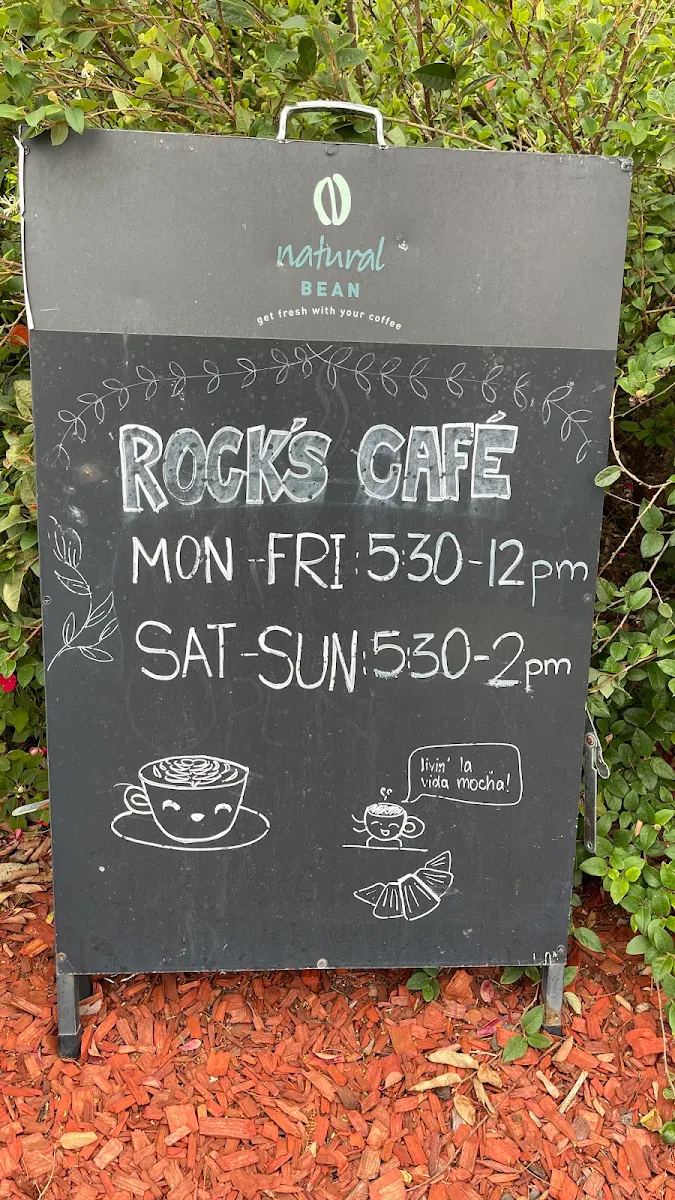 natural
BEAN
get fresh with your coffee
ROCK'S CAFÉ
MON-FRI:5:30-12pm
SAT-SUN:5:30-2pm
livin' la
vida mocha!